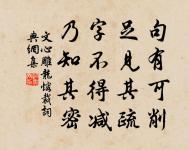 句有可削
足見其疏
字不得减
乃知其密
文心雕龍熔裁詞
典網集